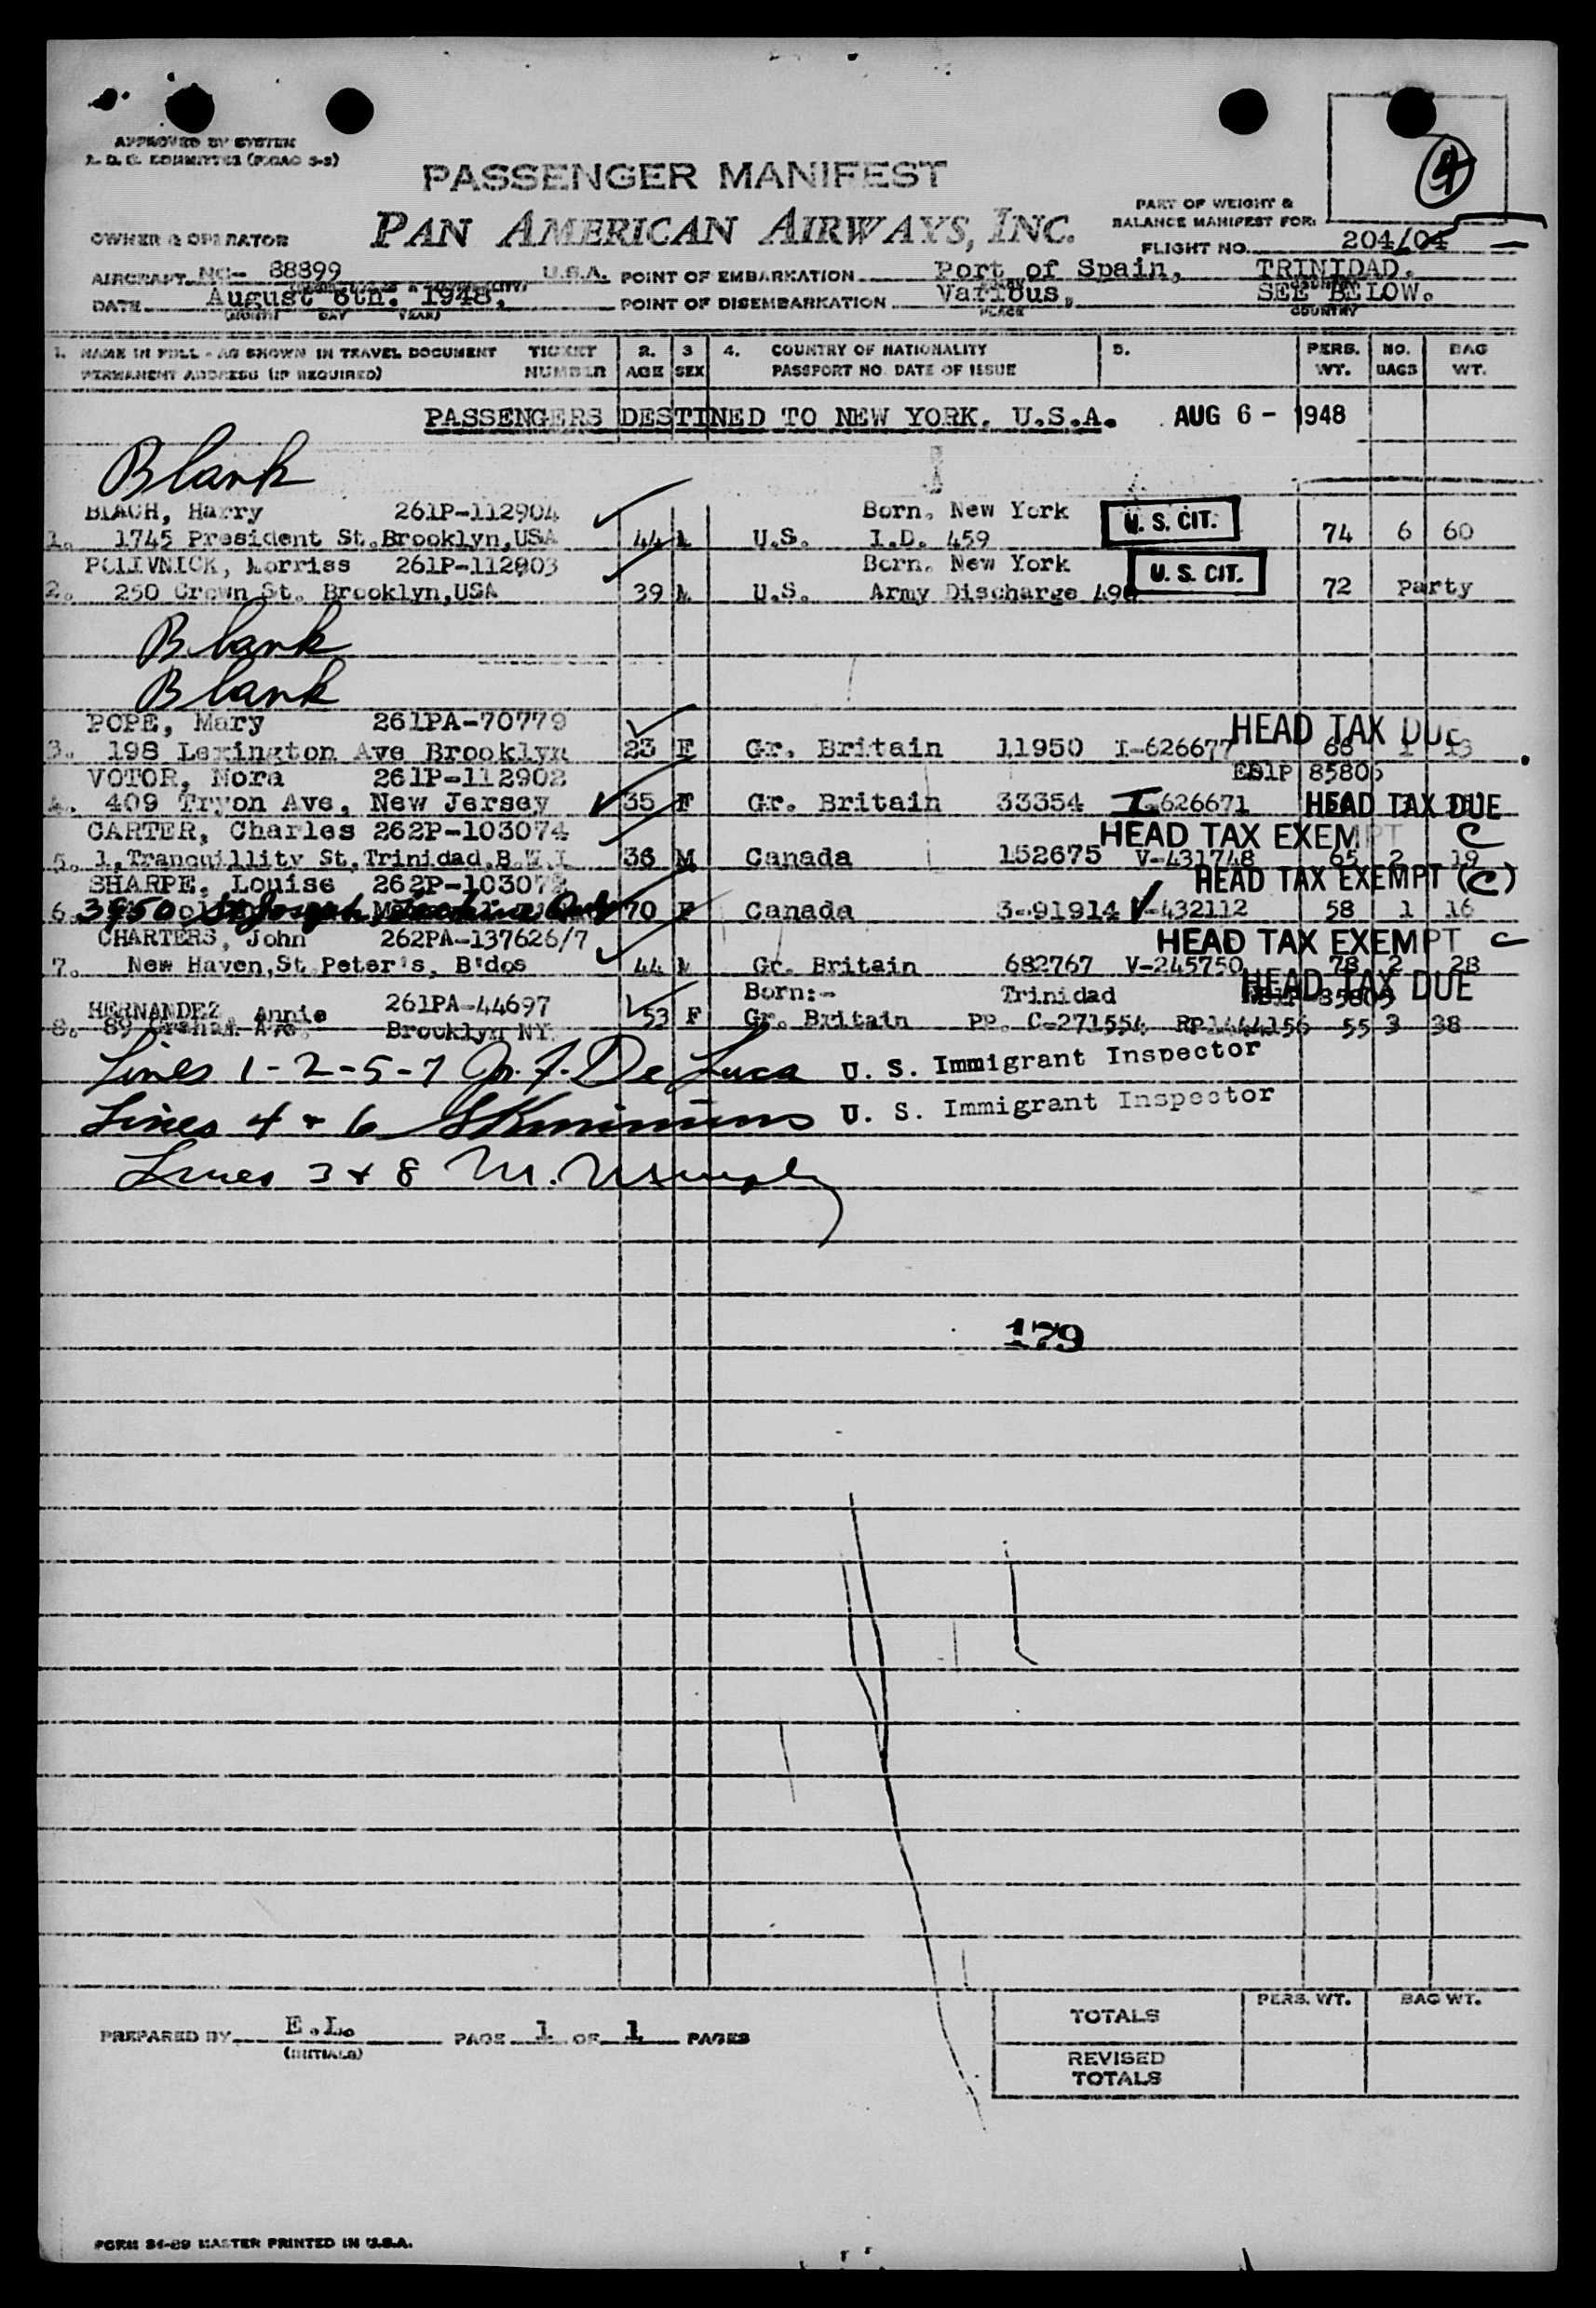 APPROVED BY SYSTEM
PASSENGER MANIFEST
PAN AMERICAN AIRWAYS, INC.
PART OF WEIGHT &
BALANCE MANIFEST FOR:
4
OWNER & OPERATOR
FLIGHT NO. 204/04
AIRCRAFT NC- 88899 U.S.A. POINT OF EMBARKATION Port of Spain, TRINIDAD.
DATE August 6th. 1948, POINT OF DISEMBARKATION Various, SEE BELOW.
(MONTH) DAY YEAR) PLACE COUNTRY
1. NAME IN FULL - AS SHOWN IN TRAVEL DOCUMENT TICKET 2. 3 4. COUNTRY OF NATIONALITY 5. PERS. NO. BAG
PERMANENT ADDRESS (IF REQUIRED) NUMBER AGE SEX PASSPORT NO. DATE OF ISSUE WT. BAGS WT.
PASSENGERS DESTINED TO NEW YORK, U.S.A. AUG 6 - 1948
Blank
BLACH, Harry 261P-112904 Born. New York U. S. CIT.
1. 1745 President St. Brooklyn, USA 44 M U.S. I.D. 459 74 6 60
POLIVNICK, Morriss 261P-112903 Born. New York U. S. CIT.
2. 250 Crown St. Brooklyn, USA 39 M U.S. Army Discharge 72 Party
Blank
Blank
POPE, Mary 261PA-70779 HEAD TAX DUE
3. 198 Lexington Ave Brooklyn 23 F Gr. Britain 11950 I-626677 68 1 13
VOTOR, Nora 261P-112902 85805
4. 409 Tryon Ave, New Jersey 35 F Gr. Britain 33354 I-626671 HEAD TAX DUE
CARTER, Charles 262P-103074 HEAD TAX EXEMPT C
5. 1, Tranquillity St, Trinidad, B.W.I 36 M Canada 152675 V-431748 65 2 19
SHARPE, Louise 262P-103072 HEAD TAX EXEMPT (C)
6. 3950 St Joseph 70 F Canada 3-91914 V-432112 58 1 16
CHARTERS, John 262PA-137626/7 HEAD TAX EXEMPT C
7. New Haven, St. Peter's, B'dos 44 M Gr. Britain 682767 V-245750 78 2 28
Born:- Trinidad HEAD TAX DUE
HERNANDEZ, Annie 261PA-44697
8. 89 Graham Ave. Brooklyn NY. 53 F Gr. Britain PP. C-271554 RP1444156 55 3 38
Lines 1-2-5-7 De Luca U. S. Immigrant Inspector
Lines 4 + 6 U. S. Immigrant Inspector
Lines 3 + 8 M.
179
PREPARED BY E.L. PAGE 1 OF 1 PAGES
(INITIALS)
TOTALS PERS. WT. BAG WT.
REVISED
TOTALS
FORM 84-89 MASTER PRINTED IN U.S.A.